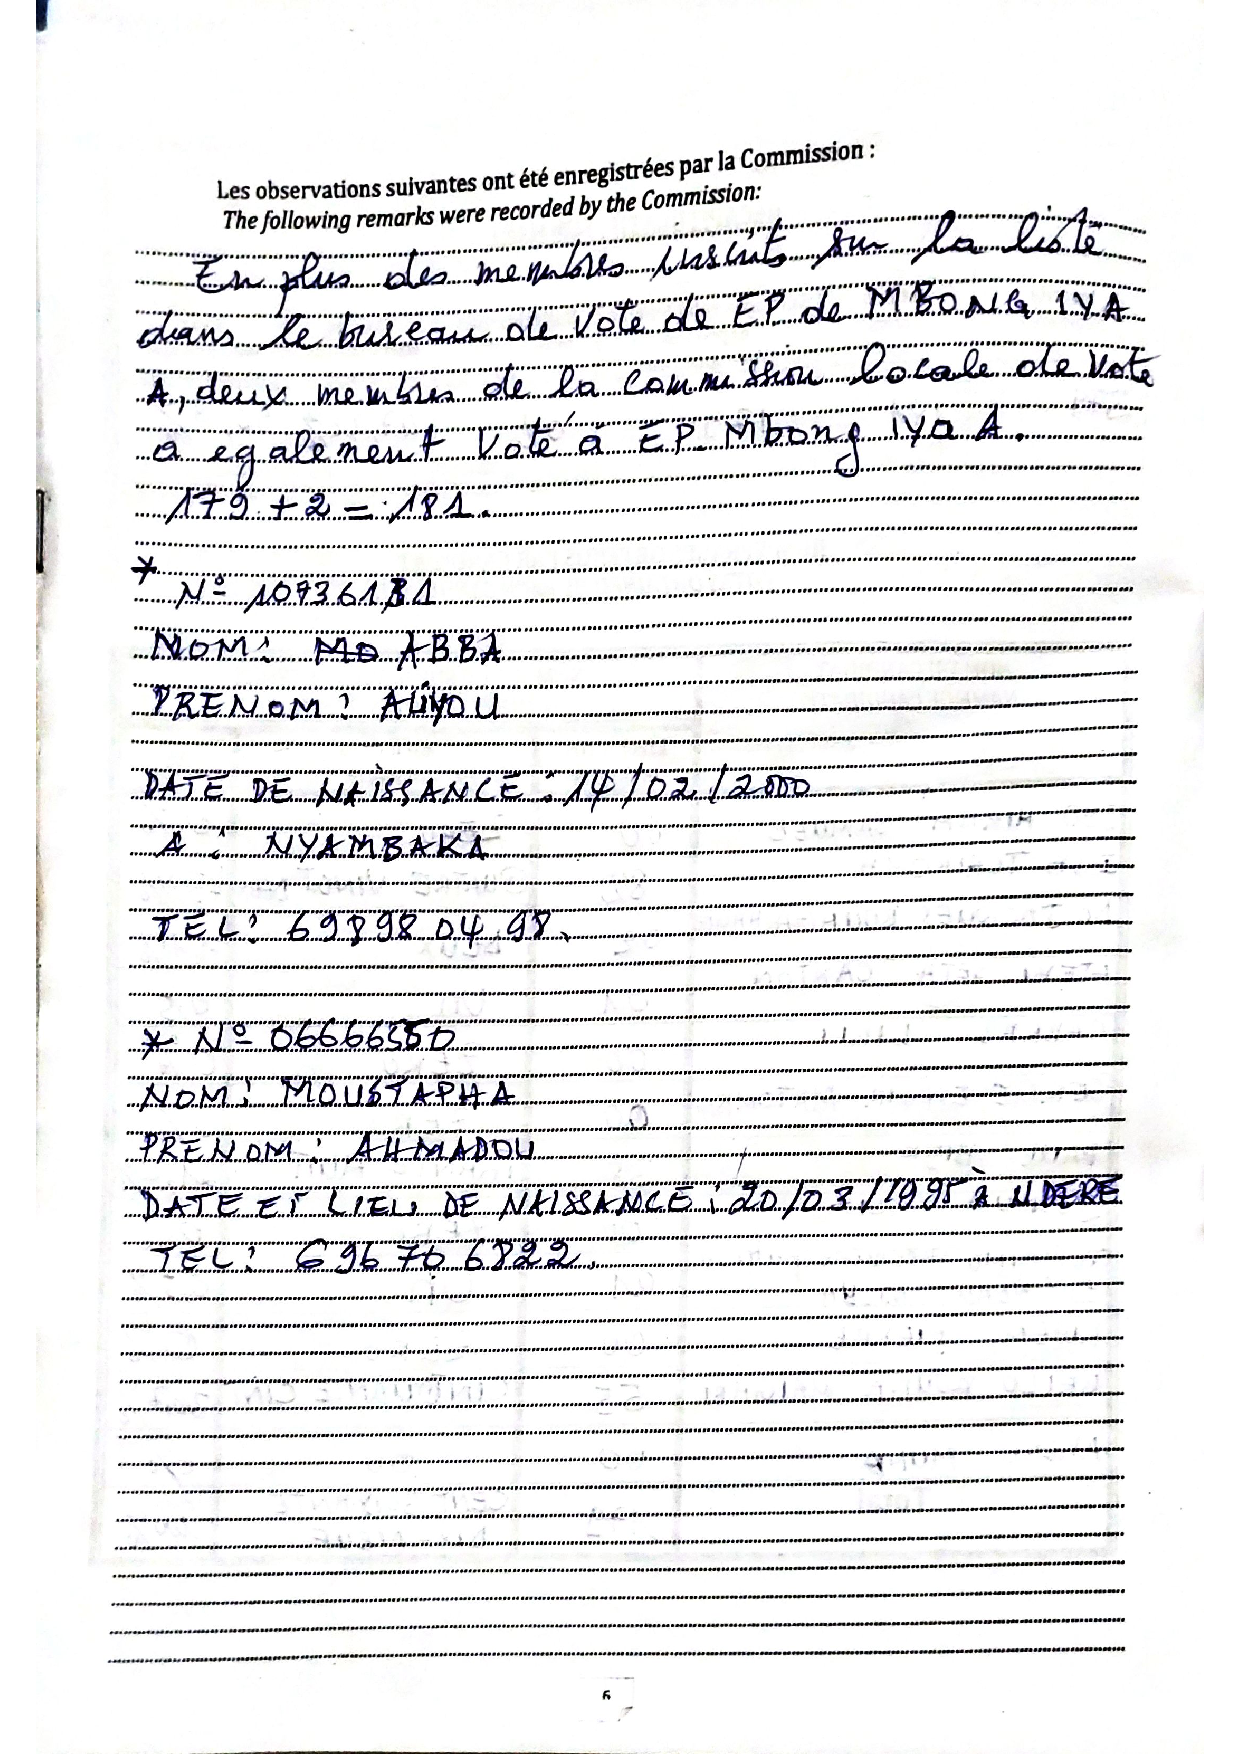 Les observations suivantes ont été enregistrées par la Commission :
The following remarks were recorded by the Commission:
En plus des membres inscrits sur la liste
dans le bureau de vote de EP de MBONG IYA
A, deux membres de la commission locale de vote
a egalement voté à EP Mbong iya A.
179 + 2 = 181.
*
N°
NOM : ABBA
PRENOM : ALIYOU
DATE DE NAISSANCE : 14/02/2000
A : NYAMBAKA
TEL : 698 98 04 98.
* N° 06666550
NOM : MOUSTAPHA
PRENOM : AHMADOU
DATE ET LIEU DE NAISSANCE : 20/03/1995 à NDERE
TEL : 696 76 6822.
6